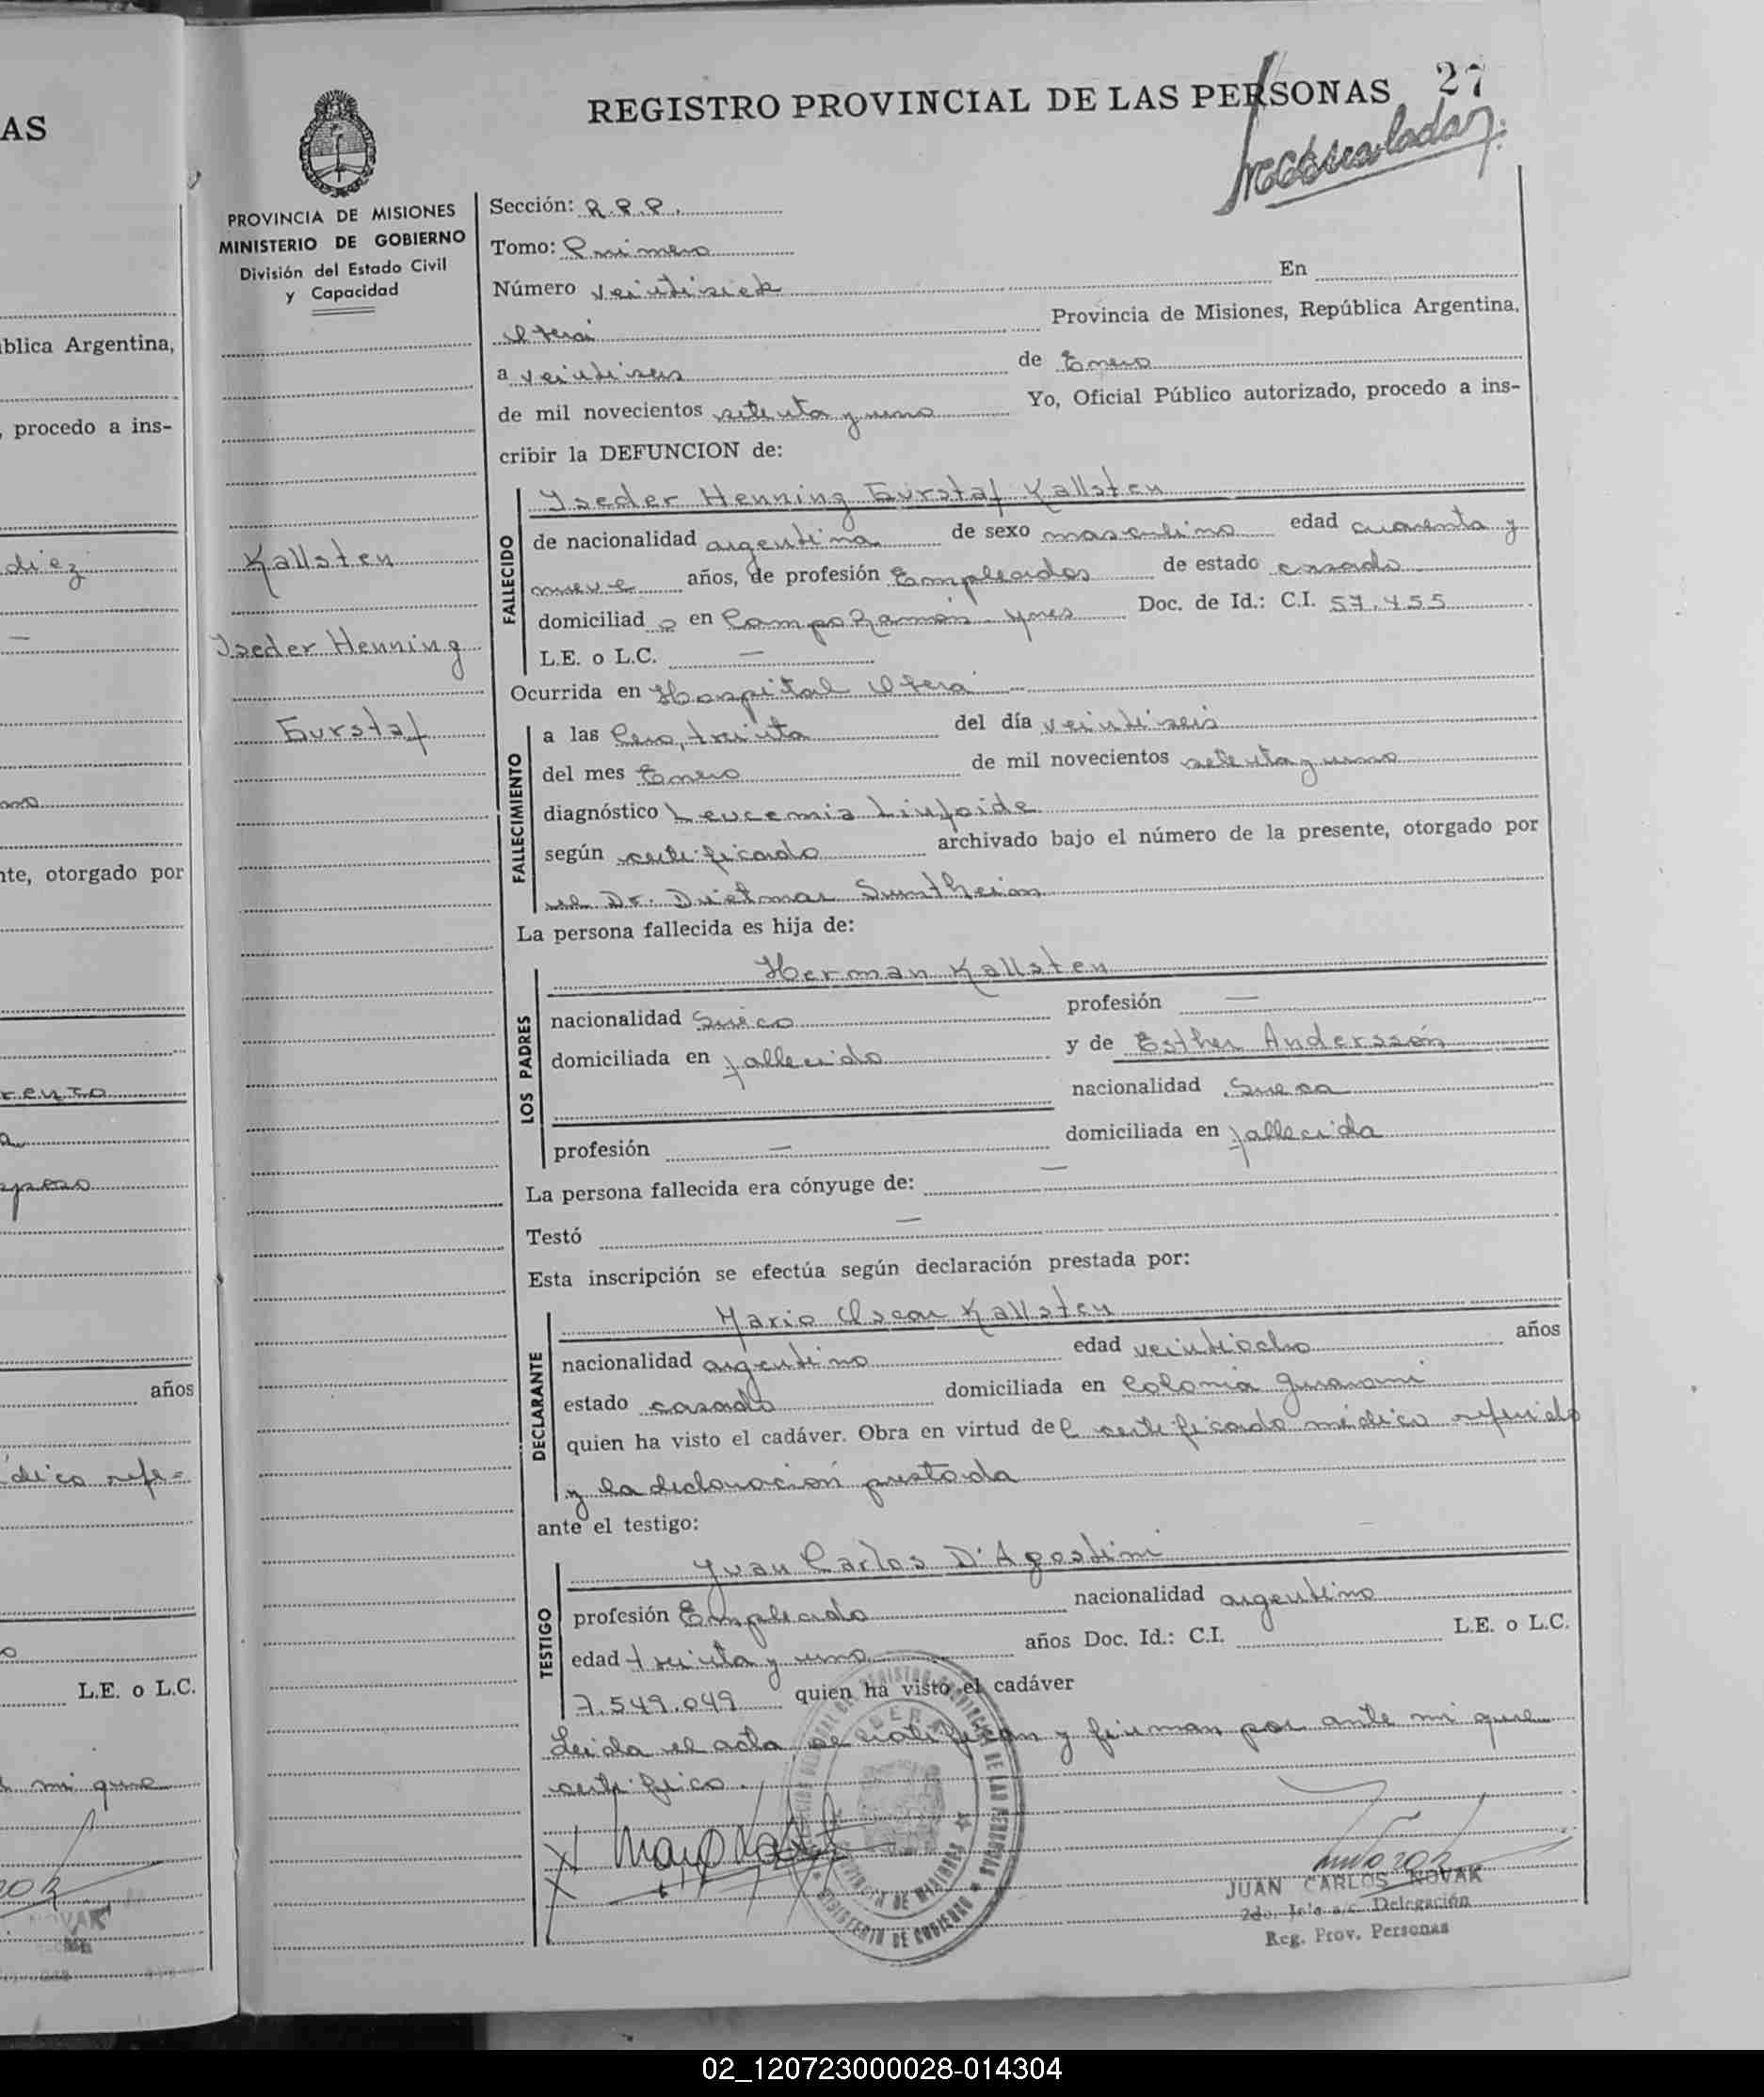 AS
blica Argentina,
, procedo a ins-
diez
nte, otorgado por
años
dico refe=
L.E. o L.C.
mi que
REGISTRO PROVINCIAL DE LAS PERSONAS 27
PROVINCIA DE MISIONES
MINISTERIO DE GOBIERNO
División del Estado Civil
y Capacidad
Kallsten
Iseder Henning
Gurstaf
Sección: R.P.P.
Tomo: Primero
Número veintisiete En
Oberá Provincia de Misiones, República Argentina,
a veintiseis de Enero
de mil novecientos setenta y uno Yo, Oficial Público autorizado, procedo a ins-
cribir la DEFUNCION de:
FALLECIDO
Iseder Henning Gurstaf Kallsten
de nacionalidad argentina de sexo masculino edad cuarenta y
nueve años, de profesión Empleados de estado casado
domiciliad o en Campo Ramón - Ynes Doc. de Id.: C.I. 57.455
L.E. o L.C. —
Ocurrida en Hospital Oberá
FALLECIMIENTO
a las Cero, treinta del día veintiseis
del mes Enero de mil novecientos setenta y uno
diagnóstico Leucemia Linfoide
según certificado archivado bajo el número de la presente, otorgado por
el Dr. Dietmar Sumtheim
La persona fallecida es hija de:
LOS PADRES
Herman Kallsten
nacionalidad Sueco profesión —
domiciliada en fallecido y de Esther Anderssón
nacionalidad Sueca
profesión — domiciliada en fallecida
La persona fallecida era cónyuge de: —
Testó —
Esta inscripción se efectúa según declaración prestada por:
DECLARANTE
Mario Oscar Kallsten
nacionalidad argentino edad veintiocho años
estado casado domiciliada en Colonia Guaraní
quien ha visto el cadáver. Obra en virtud del certificado médico referido
y la declaración prestada
ante el testigo:
TESTIGO
Juan Carlos D'Agostini
profesión Empleado nacionalidad argentino
edad treinta y uno años Doc. Id.: C.I. L.E. o L.C.
7.549.049 quien ha visto el cadáver
Leida el acta se ratifican y firman por ante mi que
certifico.
PROVINCIA DE MISIONES
MINISTERIO DE GOBIERNO
JUAN CARLOS NOVAK
2do. Jefe a/c. Delegación
Reg. Prov. Personas
02_120723000028-014304